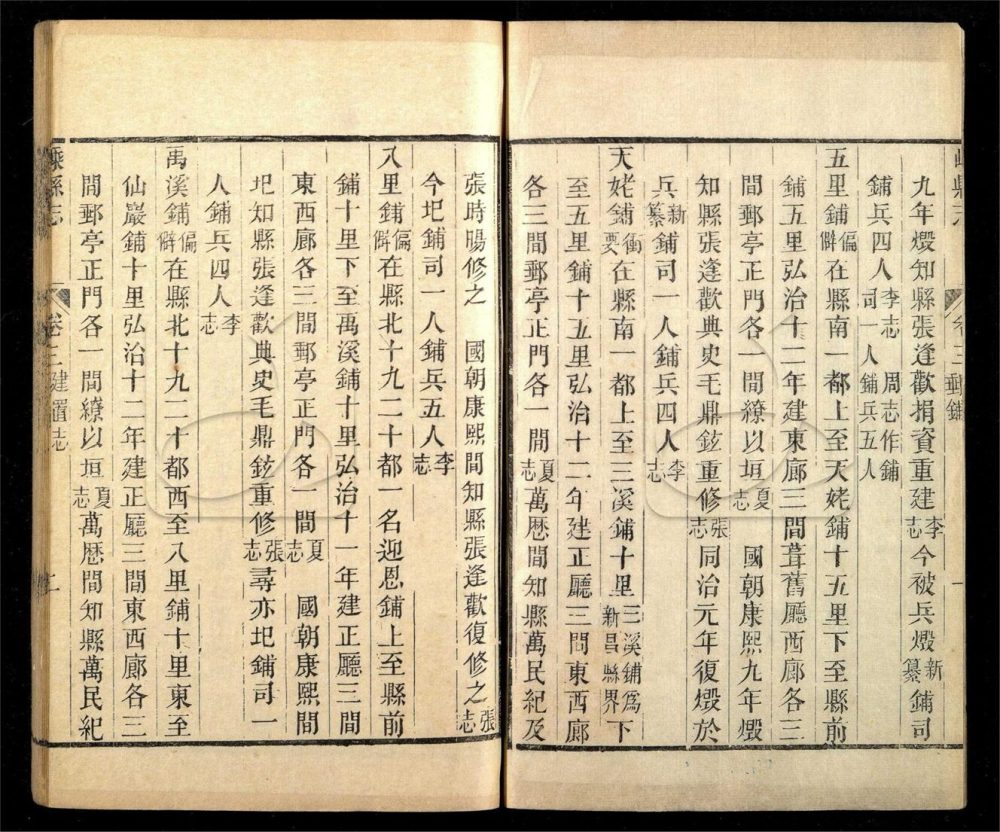 九年燬知縣張逢歡捐資重建李志今被兵燬新纂鋪司
鋪兵四人李志周志作鋪司一人鋪兵五人
五里鋪偏僻在縣南一都上至天姥鋪十五里下至縣前
鋪五里弘治十二年建東廊三間葺舊廳西廊各三
間郵亭正門各一間繚以垣夏志 國朝康熙九年燬
知縣張逢歡典史毛鼎鉉重修張志同治元年復燬於
兵新纂鋪司一人鋪兵四人李志
天姥鋪衝要在縣南一都上至三溪鋪十里三溪鋪為新昌縣界下
至五里鋪十五里弘治十二年建正廳三間東西廊
各三間郵亭正門各一間夏志萬厯間知縣萬民紀及
張時暘修之 國朝康熙間知縣張逢歡復修之張志
今圯鋪司一人鋪兵五人李志
八里鋪偏僻在縣北十九二十都一名迎恩鋪上至縣前
鋪十里下至禹溪鋪十里弘治十一年建正廳三間
東西廊各三間郵亭正門各一間夏志 國朝康熙間
圯知縣張逢歡典史毛鼎鉉重修張志尋亦圯鋪司一
人鋪兵四人李志
禹溪鋪偏僻在縣北十九二十都西至八里鋪十里東至
仙巖鋪十里弘治十二年建正廳三間東西廊各三
間郵亭正門各一間繚以垣夏志萬厯間知縣萬民紀
嵊縣志 卷三 建置志